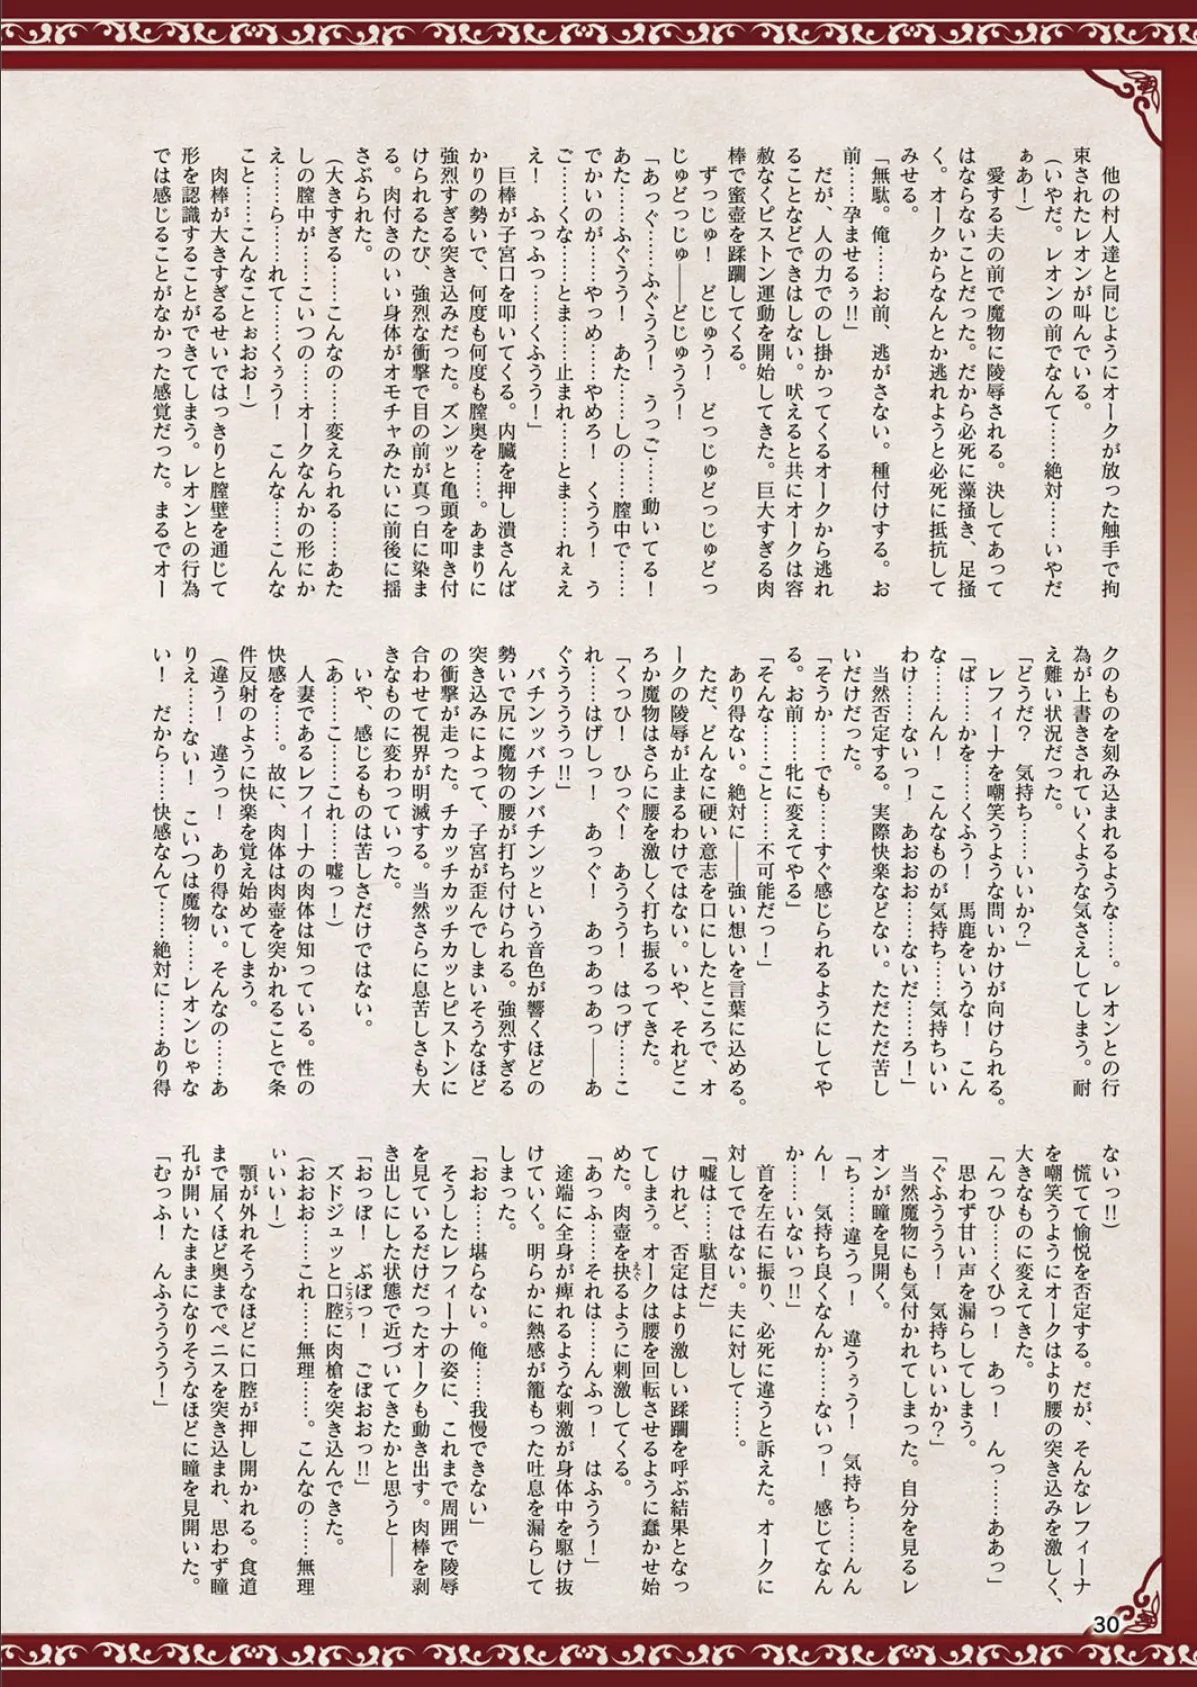 他の村人達と同じようにオークが放った触手で拘
束されたレオンが叫んでいる。
(いやだ。レオンの前でなんて……絶対……いやだ
ぁあ!)
愛する夫の前で魔物に陵辱される。決してあって
はならないことだった。だから必死に藻掻き、足掻
く。オークからなんとか逃れようと必死に抵抗して
みせる。
「無駄。俺……お前、逃がさない。種付けする。お
前……孕ませるぅ!!」
だが、人の力でのし掛かってくるオークから逃れ
ることなどできはしない。吠えると共にオークは容
赦なくピストン運動を開始してきた。巨大すぎる肉
棒で蜜壺を蹂躙してくる。
ずっじゅ! どじゅう! どっじゅどっじゅどっ
じゅどっじゅ――どじゅうう!
「あっぐ……ふぐうう! うっご……動いてる!
あた……ふぐうう! あた……しの……膣中で……
でかいのが……やっめ……やめろ! くうう! う
ご……くな……とま……止まれ……とま……れぇえ
え! ふっふっ……くふうう!」
巨棒が子宮口を叩いてくる。内臓を押し潰さんば
かりの勢いで、何度も何度も膣奥を……。あまりに
強烈すぎる突き込みだった。ズンッと亀頭を叩き付
けられるたび、強烈な衝撃で目の前が真っ白に染ま
る。肉付きのいい身体がオモチャみたいに前後に揺
さぶられた。
(大きすぎる……こんなの……変えられる……あた
しの膣中が……こいつの……オークなんかの形にか
え……ら……れて……くぅう! こんな……こんな
こと……こんなことぉおお!)
肉棒が大きすぎるせいではっきりと膣壁を通じて
形を認識することができてしまう。レオンとの行為
では感じることがなかった感覚だった。まるでオー
クのものを刻み込まれるような……。レオンとの行
為が上書きされていくような気さえしてしまう。耐
え難い状況だった。
「どうだ? 気持ち……いいか?」
レフィーナを嘲笑うような問いかけが向けられる。
「ば……かを……くふう! 馬鹿をいうな! こん
な……んん! こんなものが気持ち……気持ちいい
わけ……ないっ! あおおお……ないだ……ろ!」
当然否定する。実際快楽などない。ただただ苦し
いだけだった。
「そうか……でも……すぐ感じられるようにしてや
る。お前……牝に変えてやる」
「そんな……こと……不可能だっ!」
あり得ない。絶対に――強い想いを言葉に込める。
ただ、どんなに硬い意志を口にしたところで、オ
ークの陵辱が止まるわけではない。いや、それどこ
ろか魔物はさらに腰を激しく打ち振るってきた。
「くっひ! ひっぐ! あううう! はっげ……こ
れ……はげしっ! あっぐ! あっあっあっ――あ
ぐううううっ!!」
バチンッバチンバチンッという音色が響くほどの
勢いで尻に魔物の腰が打ち付けられる。強烈すぎる
突き込みによって、子宮が歪んでしまいそうなほど
の衝撃が走った。チカッチカッチカッとピストンに
合わせて視界が明滅する。当然さらに息苦しさも大
きなものに変わっていった。
いや、感じるものは苦しさだけではない。
(あ……こ……これ……嘘っ!)
人妻であるレフィーナの肉体は知っている。性の
快感を……。故に、肉体は肉壺を突かれることで条
件反射のように快楽を覚え始めてしまう。
(違う! 違うっ! あり得ない。そんなの……あ
りえ……ない! こいつは魔物……レオンじゃな
い! だから……快感なんて……絶対に……あり得
ないっ!!)
慌てて愉悦を否定する。だが、そんなレフィーナ
を嘲笑うようにオークはより腰の突き込みを激しく、
大きなものに変えてきた。
「んっひ……くひっ! あっ! んっ……ああっ」
思わず甘い声を漏らしてしまう。
「ぐふううう! 気持ちいいか?」
当然魔物にも気付かれてしまった。自分を見るレ
オンが瞳を見開く。
「ち……違うっ! 違うぅう! 気持ち……んん
ん! 気持ち良くなんか……ないっ! 感じてなん
か……いないっ!!」
首を左右に振り、必死に違うと訴えた。オークに
対してではない。夫に対して……。
「嘘は……駄目だ」
けれど、否定はより激しい蹂躙を呼ぶ結果となっ
てしまう。オークは腰を回転させるように蠢かせ始
めた。肉壺を抉るように刺激してくる。
「あっふ……それは……んふっ! はふうう!」
途端に全身が痺れるような刺激が身体中を駆け抜
けていく。明らかに熱感が籠もった吐息を漏らして
しまった。
「おお……堪らない。俺……我慢できない」
そうしたレフィーナの姿に、これまで周囲で陵辱
を見ているだけだったオークも動き出す。肉棒を剥
き出しにした状態で近づいてきたかと思うと――
「おっぽ! ぶぽっ! ごぽおおっ!!」
ズドジュッと口腔に肉槍を突き込んできた。
(おおお……これ……無理……。こんなの……無理
ぃいい!)
顎が外れそうなほどに口腔が押し開かれる。食道
まで届くほど奥までペニスを突き込まれ、思わず瞳
孔が開いたままになりそうなほどに瞳を見開いた。
「むっふ! んふうううう!」
30